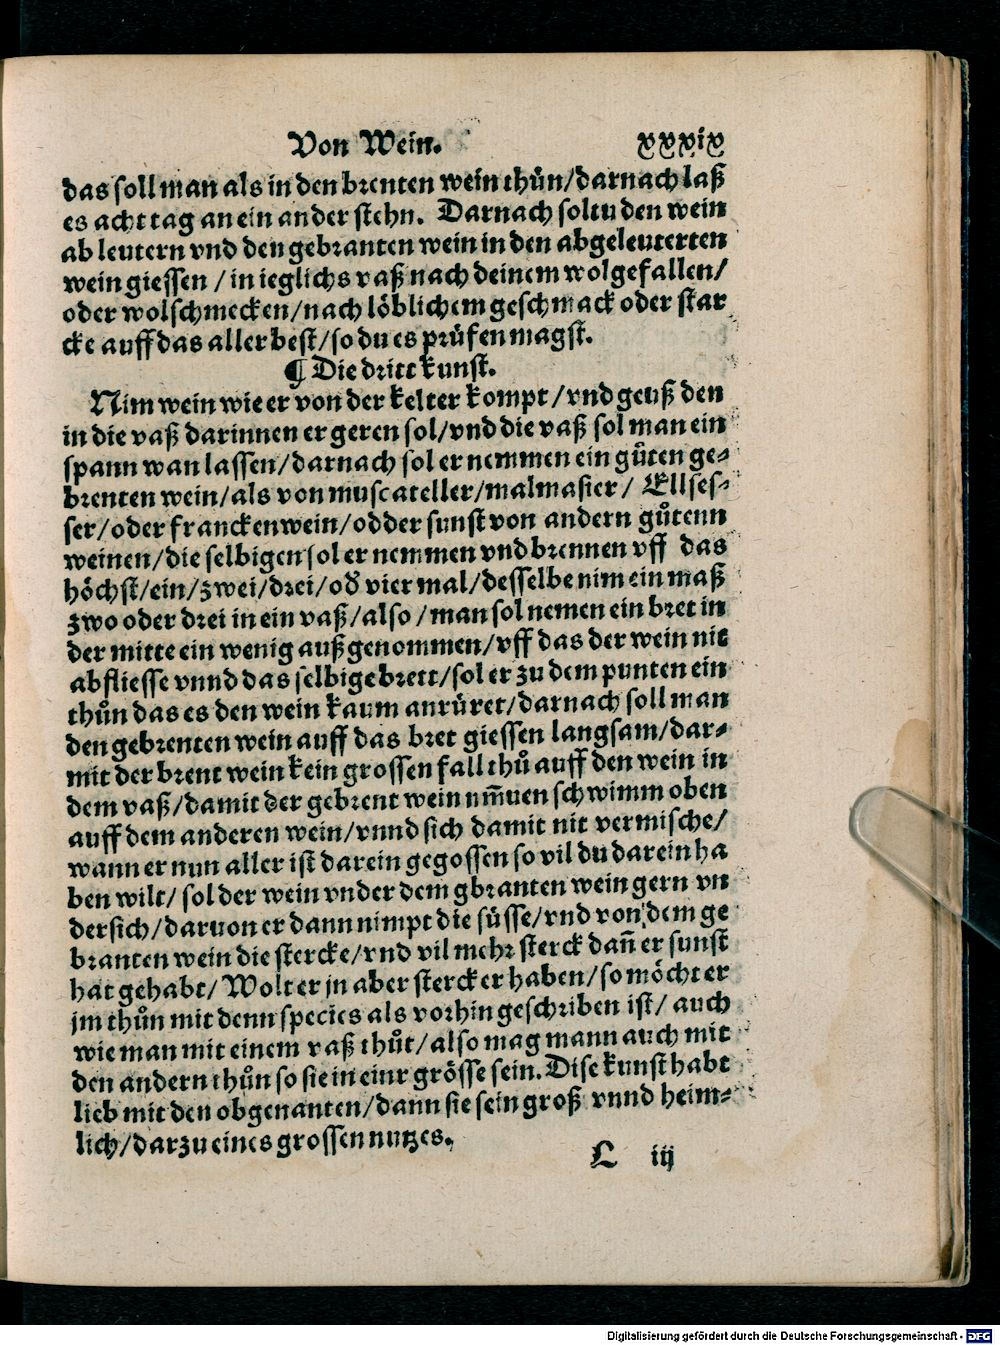 Von Wein. xxxix
das soll man als in den brenten wein thůn/darnach laß
es acht tag an ein ander stehn. Darnach soltu den wein
ab leutern vnd den gebranten wein in den abgeleuterten
wein giessen / in ieglichs vaß nach deinem wolgefallen/
oder wolschmecken/nach löblichem geschmack oder star
cke auff das aller best/so du es prüfen magst.
¶ Die dritt kunst.
Nim wein wie er von der kelter kompt/vnd geuß den
in die vaß darinnen er geren sol/vnd die vaß sol man ein
spann wan lassen/darnach sol er nemmen ein gůten ge⸗
brenten wein/als von muscateller/malmasier/ Ellses⸗
ser/oder franckenwein/odder sunst von andern gůtenn
weinen/die selbigen sol er nemmen vnd brennen vff das
höchst/ein/zwei/drei/od̕ vier mal/desselbe nim ein maß
zwo oder drei in ein vaß/also/man sol nemen ein bret in
der mitte ein wenig außgenommen/vff das der wein nit
abfliesse vnnd das selbige brett/sol er zu dem punten ein
thůn das es den wein kaum anrüret/darnach soll man
den gebrenten wein auff das bret giessen langsam/dar⸗
mit der brent wein kein grossen fall thů auff den wein in
dem vaß/damit der gebrent wein nm̃uen schwimm oben
auff dem anderen wein/vnnd sich damit nit vermische/
wann er nun aller ist darein gegossen so vil du darein ha
ben wilt/ sol der wein vnder dem gbranten wein gern vn
dersich/daruon er dann nimpt die süsse/vnd von dem ge
branten wein die stercke/vnd vil mehr sterck dañ er sunst
hat gehabt/ Wolt er jn aber stercker haben/so möcht er
jm thůn mit denn species als vorhin geschriben ist/ auch
wie man mit einem vaß thůt/also mag mann auch mit
den andern thůn so sie in einr grösse sein. Dise kunst habt
lieb mit den obgenanten/dann sie sein groß vnnd heim⸗
lich/darzu eines grossen nutzes.
L iij
Digitalisierung gefördert durch die Deutsche Forschungsgemeinschaft - DFG